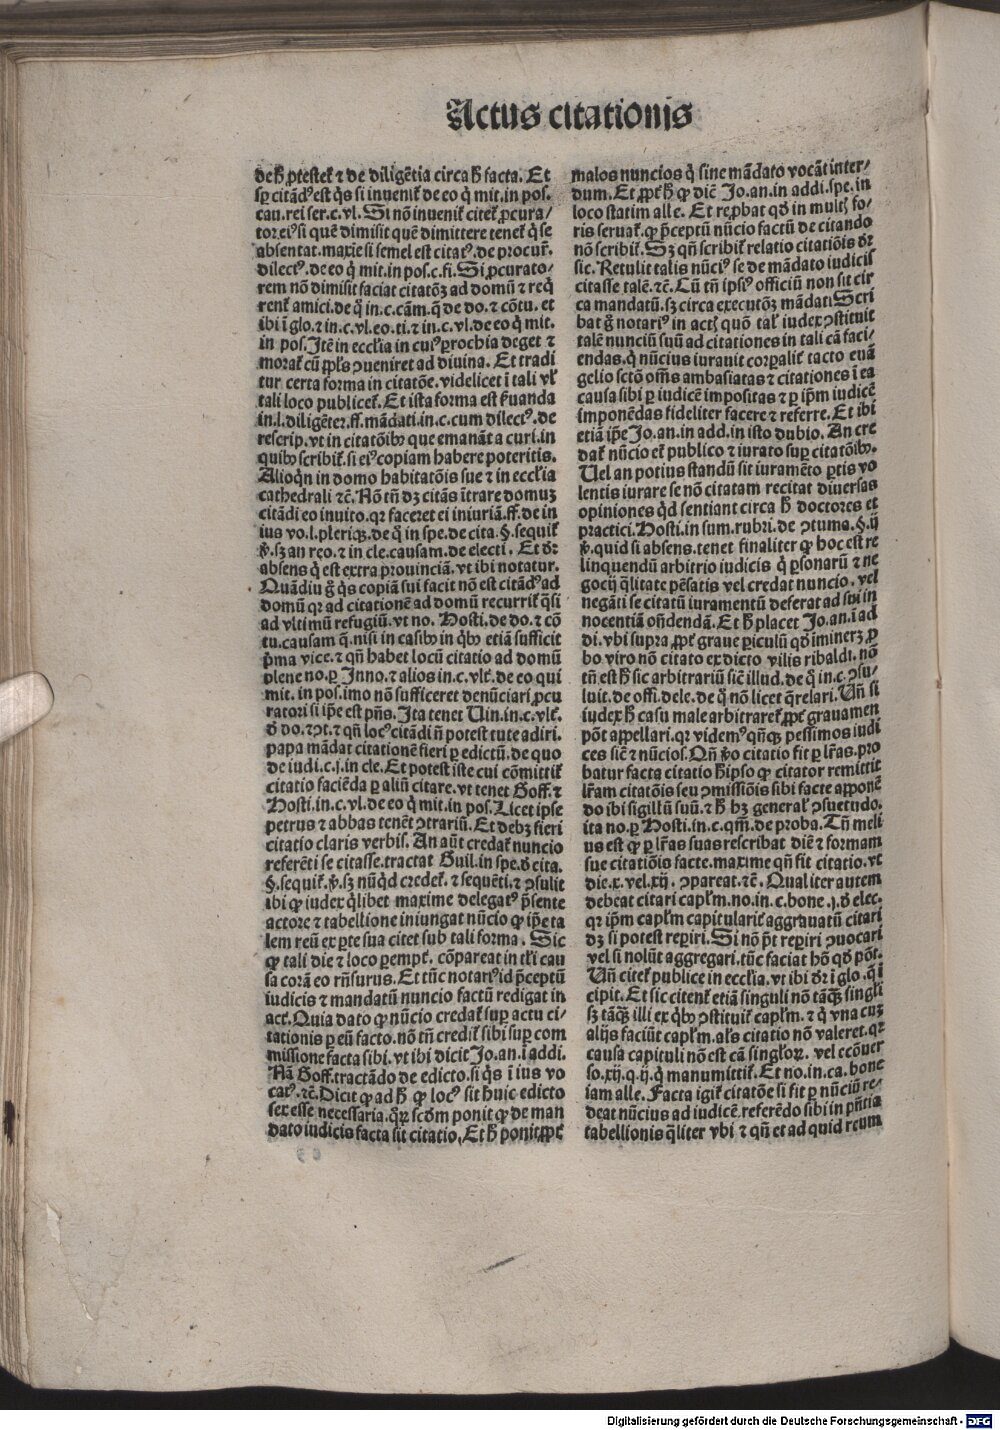 Actus citationis
de hͦ ꝓtestet᷑ ⁊ de diligētia circa hͦ facta. Et
sꝑ citādꝰ est q̇s si inuenit᷑ de eo q̇ mit. in pos.
cau. rei ser. c. vl. Si nō inuenit᷑ citet᷑ ꝓcura/
tor eiꝰ si quē dimisit quē dimittere tenet᷑ q̇ se
absentat. maxīe si semel est citatꝰ. de procur̄.
dilectꝰ. de eo q̇ mit. in pos. c. fi. Si ꝓcurato/
rem nō dimisit faciat citatōꝫ ad domū ⁊ req̇
rent᷑ amici. de q̇ in. c. cām. q̄ de do. ⁊ cōtu. et
ibi ī glo. ⁊ in. c. vl. eo. ti. ⁊ in. c. vl. de eo q̇ mit.
in pos. Itē in eccl̄ia in cuiꝰ ꝑrochia deget ⁊
morat᷑ cū ppl̄s ꝯueniret ad diuina. Et tradi
tur certa forma in citatōe. videlicet ī tali vl̄
tali loco publicet᷑. Et ista forma est ẜuanda
in. l. diligēter. ff. mādati. in. c. cum dilectꝰ. de
rescrip. vt in citatōibꝰ que emanāt a curi. in
quibꝰ scribit᷑. si eiꝰ copiam habere poteritis.
Alioq̇n in domo habitatōis sue ⁊ in eccl̄ia
cathedrali ⁊c̄. Nō tn̄ dꝫ citās ītrare domuꝫ
citādi eo inuito. qꝛ faceret ei iniuriā. ff. de in
ius vo. l. pleriqꝫ. de q̇ in spe. de cita. §. sequit᷑
ꝟ. sꝫ an reo. ⁊ in cle. causam. de electi. Et dr̄
absens q̇ est extra prouinciā. vt ibi notatur.
Quādiu g̊ q̇s copiā sui facit nō est citādꝰ ad
domū qꝛ ad citationē ad domū recurrit᷑ q̇si
ad vltimū refugiū. vt no. Hosti. de do. ⁊ cō
tu. causam q̄. nisi in casibꝰ in q̇bꝰ etiā sufficit
p̄ma vice. ⁊ qn̄ habet locū citatio ad domū
plene no. ꝑ Inno. ⁊ alios in. c. vlt̄. de eo qui
mit. in pos. imo nō sufficeret denūciari ꝓcu
ratori si ip̄e est pn̄s. Ita tenet Uin. in. c. vlt̄.
ð do. ⁊ ꝯt. ⁊ qn̄ locꝰ citādi n̄ potest tute adiri.
papa mādat citationē fieri ꝑ edictū. de quo
de iudi. c. j. in cle. Et potest iste cui cōmittit᷑
citatio faciēda ꝑ aliū citare. vt tenet Goff. ⁊
Hosti. in. c. vl. de eo q̇ mit. in pos. Licet ipse
petrus ⁊ abbas tenēt ꝯtrariū. Et debꝫ fieri
citatio claris verbis. An aūt credat᷑ nuncio
referēti se citasse. tractat Guil. in spe. ð cita.
§. sequit᷑. ꝟ. sꝫ nūq̇d credet᷑. ⁊ sequēti. ⁊ ꝯsulit
ibi ꝙ iudex q̇libet maxime delegatꝰ p̄sente
actore ⁊ tabellione iniungat nūcio ꝙ ip̄e ta
lem reū ex ꝑte sua citet sub tali forma. Sic
ꝙ tali die ⁊ loco ꝑempt̄. cōpareat in tl̄i cau
sa corā eo rn̄surus. Et tūc notariꝰ id p̄ceptū
iudicis ⁊ mandatū nuncio factū redigat in
act̄. Quia dato ꝙ nūcio credat᷑ suꝑ actu ci/
tationis ꝑ eū facto. nō tn̄ credit᷑ sibi suꝑ com
missione facta sibi. vt ibi dicit Jo. an. ī addi.
Nā Goff. tractādo de edicto. si q̇s ī ius vo
catꝰ. ⁊c̄. Dicit ꝙ ad hͦ ꝙ locꝰ sit huic edicto
sex esse necessaria. q̊ꝝ scd̄m ponit ꝙ de man
dato iudicis facta sit citatio. Et hͦ ponit ꝓpt̄
malos nuncios q̇ sine mādato vocāt inter/
dum. Et ꝓpt̄ hͦ ꝙ dic̄ Jo. an. in addi. spe. in
loco statim alle. Et reꝓbat qð in mult̄ fo/
ris seruat᷑. ꝙ p̄ceptū nūcio factū de citando
nō scribit᷑. Sꝫ qn̄ scribit᷑ relatio citatiōis dr̄
sic. Retulit talis nūciꝰ se de mādato iudicis
citasse talē. ⁊c̄. Cū tn̄ ipsiꝰ officiū non sit cir
ca mandatū. sꝫ circa executōꝫ mādati. Scri
bat g̊ notariꝰ in act̄ quō tal̄ iudex ꝯstituit
talē nunciū suū ad citationes in tali cā faci/
endas. q̇ nūcius iurauit corꝑalit᷑ tacto euā
gelio sctō om̄s ambasiatas ⁊ citationes ī ea
causa sibi ꝑ iudicē impositas ⁊ ꝑ ip̄m iudicē
imponēdas fideliter facere ⁊ referre. Et ibi
etiā ip̄e Jo. an. in add. in isto dubio. An cre
dat᷑ nūcio et᷑ publico ⁊ iurato suꝑ citatōibꝰ.
Uel an potius standū sit iuramēto ꝑtis vo
lentis iurare se nō citatam recitat diuersas
opiniones q̇d sentiant circa hͦ doctores et
practici. Hosti. in sum. rubri. de ꝯtuma. §. ij
ꝟ. quid si absens. tenet finaliter ꝙ hoc est re
linquendū arbitrio iudicis q̇ ꝑsonarū ⁊ ne
gocij q̄litate pēsatis vel credat nuncio. vel
negāti se citatū iuramentū deferat ad sui in
nocentiā on̄dendā. Et hͦ placet Jo. an. ī ad
di. vbi supra ꝓpt̄ graue ꝑiculū qð iminerꝫ ꝓ
bo viro nō citato ex dicto vilis ribaldi. nō
tn̄ est hͦ sic arbitrariū sic̄ illud. de q̇ in. c. ꝯsu/
luit. de offi. dele. de q̇ nō licet q̄relari. Un̄ si
iudex hͦ casu male arbitraret᷑ ꝓpt̄ grauamen
pōt appellari. qꝛ videmꝰ qn̄qꝫ pessimos iudi
ces sic̄ ⁊ nūcios. Qn̄ ꝟo citatio fit ꝑ lr̄as. pro
batur facta citatio hͦ ipso ꝙ citator remittit
lr̄am citatōis seu ꝯmissiōis sibi facte apponē
do ibi sigillū suū. ⁊ hͦ hꝫ general̄ ꝯsuetudo.
ita no. ꝑ Hosti. in. c. qm̄. de proba. Tn̄ meli
us est ꝙ ꝑ lr̄as suas rescribat diē ⁊ formam
sue citatiōis facte. maxime qn̄ fit citatio. vt
die. x. vel. xij. ꝯpareat. ⁊c̄. Qualiter autem
debeat citari capl̄m. no. in. c. bone. j. ð elec.
qꝛ ip̄m capl̄m capitularit᷑ aggrauatū citari
dꝫ si potest reꝑiri. Si nō pt̄ reꝑiri ꝯuocari
vel si nolūt aggregari. tūc faciat hō qð pōt.
Un̄ citet᷑ publice in eccl̄ia. vt ibi dr̄ ī glo. q̄ ī
cipit. Et sic citent᷑ etiā singuli nō tāqꝫ singl̄i
sꝫ tāqꝫ illi ex q̇bꝰ ꝯstituit᷑ capl̄m. ⁊ q̇ vna cuꝫ
alijs faciūt capl̄m. al̄s citatio nō valeret. qꝛ
causa capituli nō est cā singl̄oꝝ. vel ecōuer
so. xij. q. ij. q̇ manumittit᷑. Et no. in. ca. bone
iam alle. Facta igit᷑ citatōe si fit ꝑ nūciū re/
deat nūcius ad iudicē. referēdo sibi in pn̄tia
tabellionis q̄liter vbi ⁊ qn̄ et ad quid reum
Digitalisierung gefördert durch die Deutsche Forschungsgemeinschaft - DFG